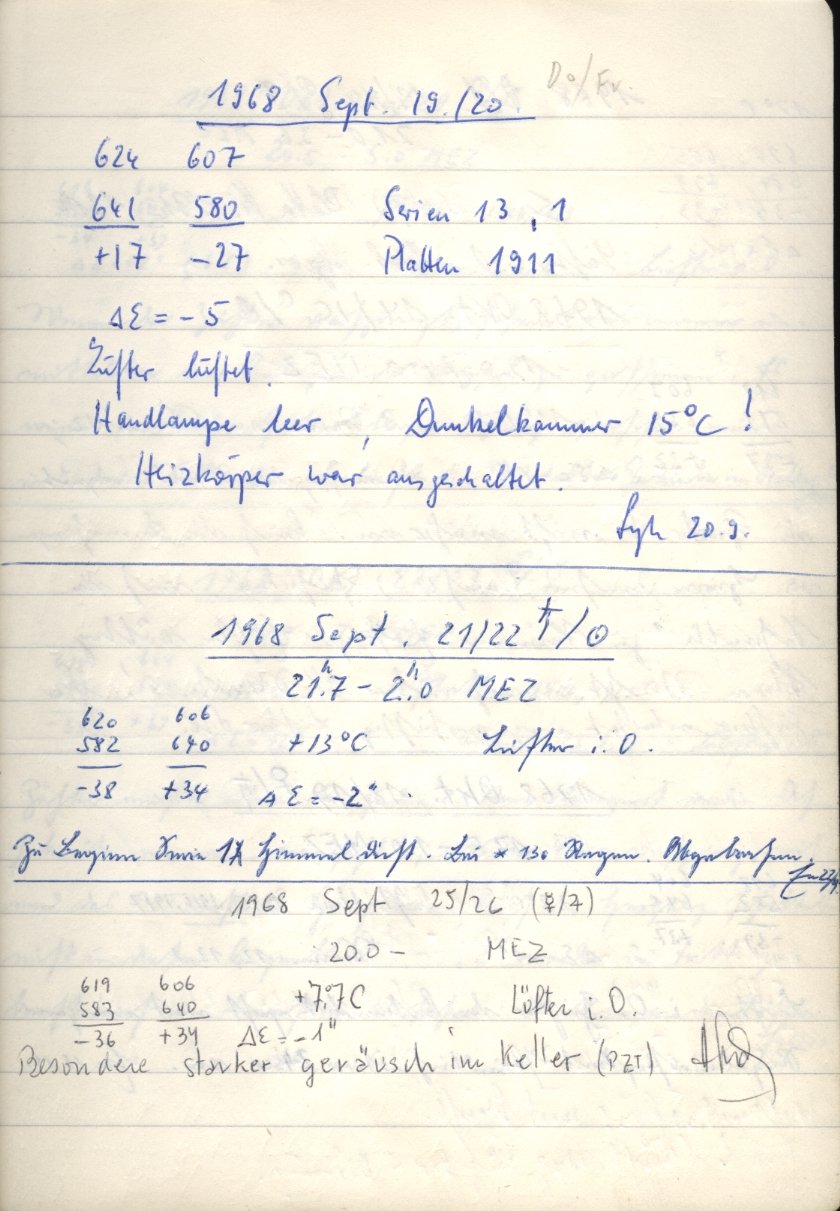 Do/Fr.
1968 Sept. 19./20.
624 607
641 580 Serien 13, 1
+17 -27 Platten 1911
ΔE = -5
Lüfter lüftet.
Handlampe leer, Dunkelkammer 15°C!
Heizkörper war ausgeschaltet.
20.9.
1968 Sept. 21/22 ♄/☉
21ʰ.7 - 2ʰ.0 MEZ
620 606
582 640 +13°C Lüfter i.O.
-38 +34 ΔE = -2"
Zu Beginn Serie 17 Himmel dicht. Bei * 130 Regen. Abgebrochen.
1968 Sept 25/26 (☿/♃)
20.0 - MEZ
619 606
583 640 +7°.7C Löfter i.O.
-36 +34 ΔE = -1"
Besondere starker geräusch im Keller (PZT)